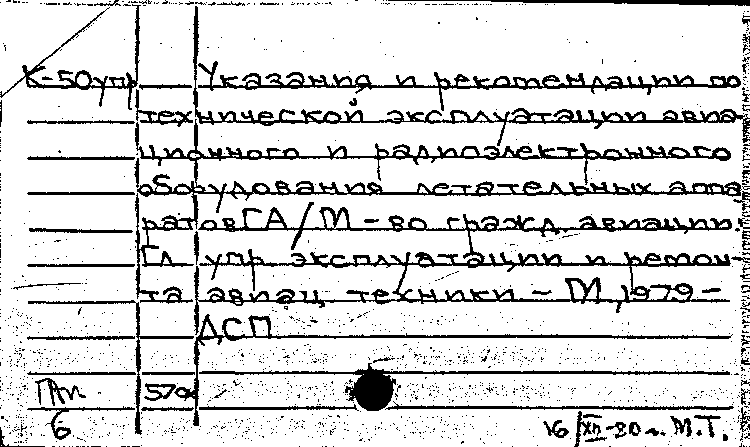 К-50упр Указания и рекомендации по
технической эксплуатации авиа-
ционного и радиоэлектронного
оборудования летательных аппа
ратов ГА/М - 80 гражд. авиации.
Гл упр эксплуатации и ремон-
та авиац техники - М, 1979 -
ДСП
570
6
16/XII-80 г. М.Т.